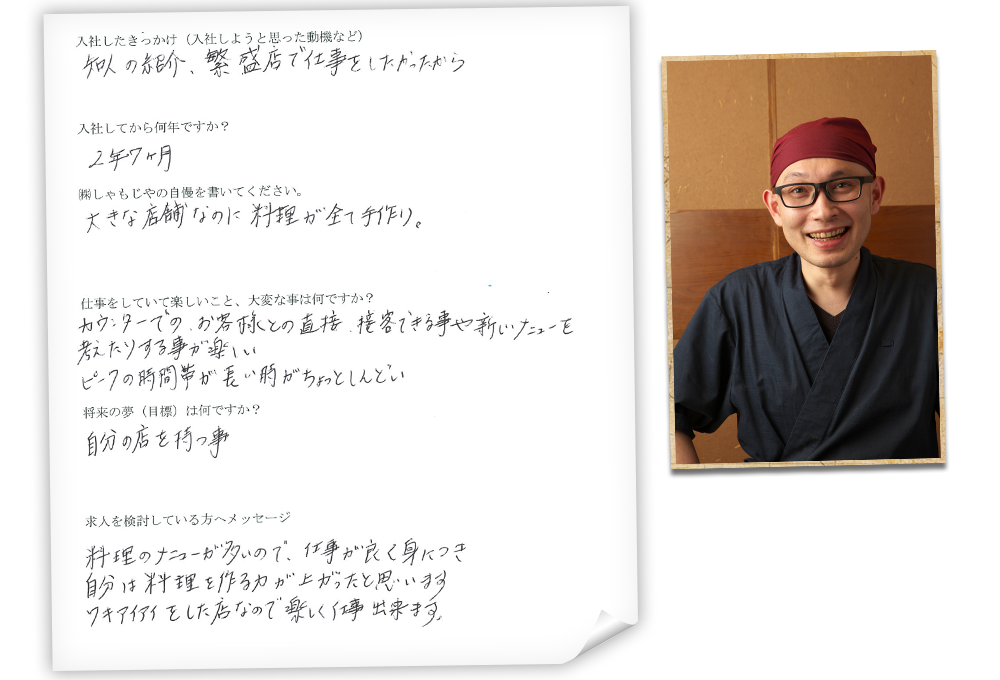 入社したきっかけ（入社しようと思った動機など）
知人の紹介、繁盛店で仕事をしたかったから
入社してから何年ですか？
2年7ヶ月
㈱しゃもじやの自慢を書いてください。
大きな店舗なのに料理が全て手作り。
仕事をしていて楽しいこと、大変な事は何ですか？
カウンターでの、お客様との直接、接客できる事や新しいメニューを
考えたりする事が楽しい
ピークの時間帯が長い時がちょっとしんどい
将来の夢（目標）は何ですか？
自分の店を持つ事
求人を検討している方へメッセージ
料理のメニューが多いので、仕事が良く身につき
自分は料理を作る力が上がったと思います
ワキアイアイとした店なので楽しく仕事出来ます。